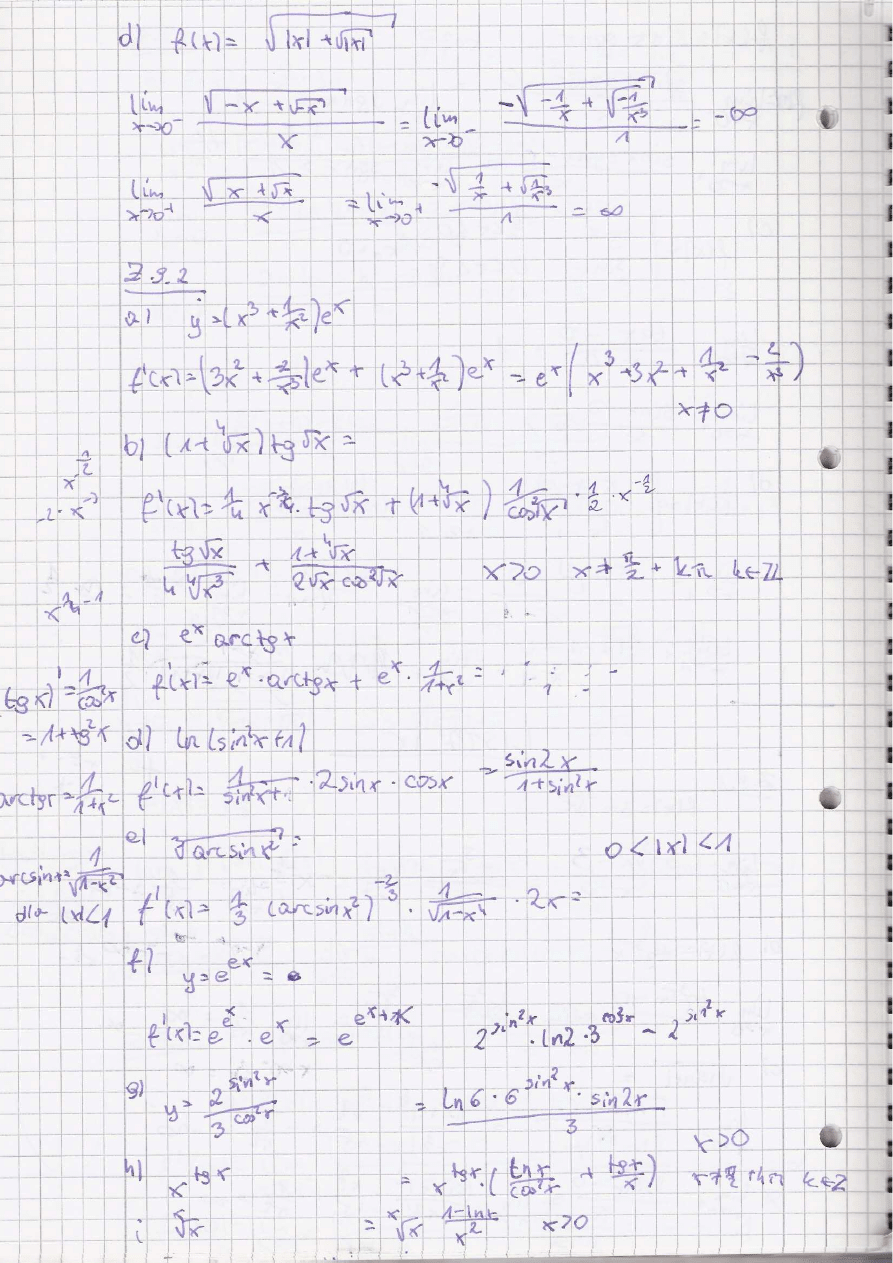 d) f(x) = √(|x| + √|x|)
lim x→0⁻ √(-x + √-x) / x = lim x→0⁻ -√(-1/x + √(-1/x³)) / 1 = -∞
lim x→0⁺ √(x + √x) / x = lim x→0⁺ -√(1/x + √(1/x³)) / 1 = ∞
Z.9.2
a) y = (x³ + 1/x²)eˣ
f'(x) = (3x² + 2/x³)eˣ + (x³ + 1/x²)eˣ = eˣ(x³ + 3x² + 1/x² - 2/x³)
x ≠ 0
b) (1 + ⁴√x) tg√x =
x^(1/2)
-2·x⁻³
f'(x) = 1/4 x^(-3/4) · tg√x + (1 + ⁴√x) 1/cos²√x · 1/2 · x^(-1/2)
tg√x / 4 ⁴√x³ + 1 + ⁴√x / 2√x cos²√x x > 0 x ≠ π/2 + kπ k∈ℤ
x^(1/4 - 1)
c) eˣ arctgx
(tgx)' = 1/cos²x
= 1 + tg²x
f'(x) = eˣ · arctgx + eˣ · 1/(1+x²) =
d) ln(sin²x + 1)
arctgx = 1/(1+x²)
f'(x) = 1/(sin²x + 1) · 2sinx · cosx = sin2x / (1 + sin²x)
e) ³√(arcsinx²) =
0 < |x| < 1
arcsinx = 1/√(1-x²)
dla |x| < 1
f'(x) = 1/3 (arcsinx²)^(-2/3) · 1/√(1-x⁴) · 2x =
f) y = e^(eˣ) =
f'(x) = e^(eˣ) · eˣ = e^(eˣ + x)
2^(sin²x) · ln2 · 3^(cos²x) - 2^(sin²x)
g) y = 2^(sin²x) / 3^(cos²x) = ln6 · 6^(sin²x) · sin2x / 3
x > 0
h) x^(tgx) = x^(tgx) · (lnx / cos²x + tgx / x) x ≠ π/2 + kπ k∈Z
i ˣ√x = ˣ√x (1 - lnx) / x² x > 0